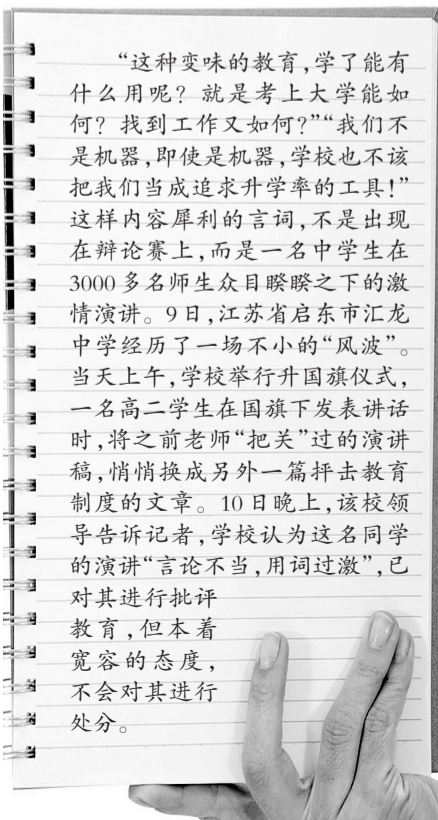 “这种变味的教育,学了能有
什么用呢？就是考上大学能如
何？找到工作又如何？”“我们不
是机器,即使是机器,学校也不该
把我们当成追求升学率的工具!”
这样内容犀利的言词,不是出现
在辩论赛上,而是一名中学生在
3000多名师生众目睽睽之下的激
情演讲。9日,江苏省启东市汇龙
中学经历了一场不小的“风波”。
当天上午,学校举行升国旗仪式,
一名高二学生在国旗下发表讲话
时,将之前老师“把关”过的演讲
稿,悄悄换成另外一篇抨击教育
制度的文章。10日晚上,该校领
导告诉记者,学校认为这名同学
的演讲“言论不当,用词过激”,已
对其进行批评
教育,但本着
宽容的态度,
不会对其进行
处分。